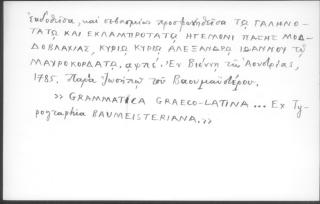 ἐκδοθεῖσα, καὶ εὐσεβασμίως προσφωνηθεῖσα ΤΩ ΓΑΛΗΝΟ-
ΤΑΤῼ ΚΑΙ ΕΚΛΑΜΠΡΟΤΑΤῼ ΗΓΕΜΟΝΙ ΠΑΣΗΣ ΜΟΛ-
ΔΟΒΛΑΧΙΑΣ, ΚΥΡΙῼ ΚΥΡΙῼ ΑΛΕΞΑΝΔΡῼ ΙΩΑΝΝΟΥ τῷ
ΜΑΥΡΟΚΟΡΔΑΤῼ. αψπέ. Ἐν Βιέννῃ τῆς Ἀουστρίας,
1785, Παρὰ Ἰωσήπῳ τοῦ Βαουμαϊστέρου.
» GRAMMATICA GRAECO-LATINA ... Ex Ty-
pographia BAUMEISTERIANA. »